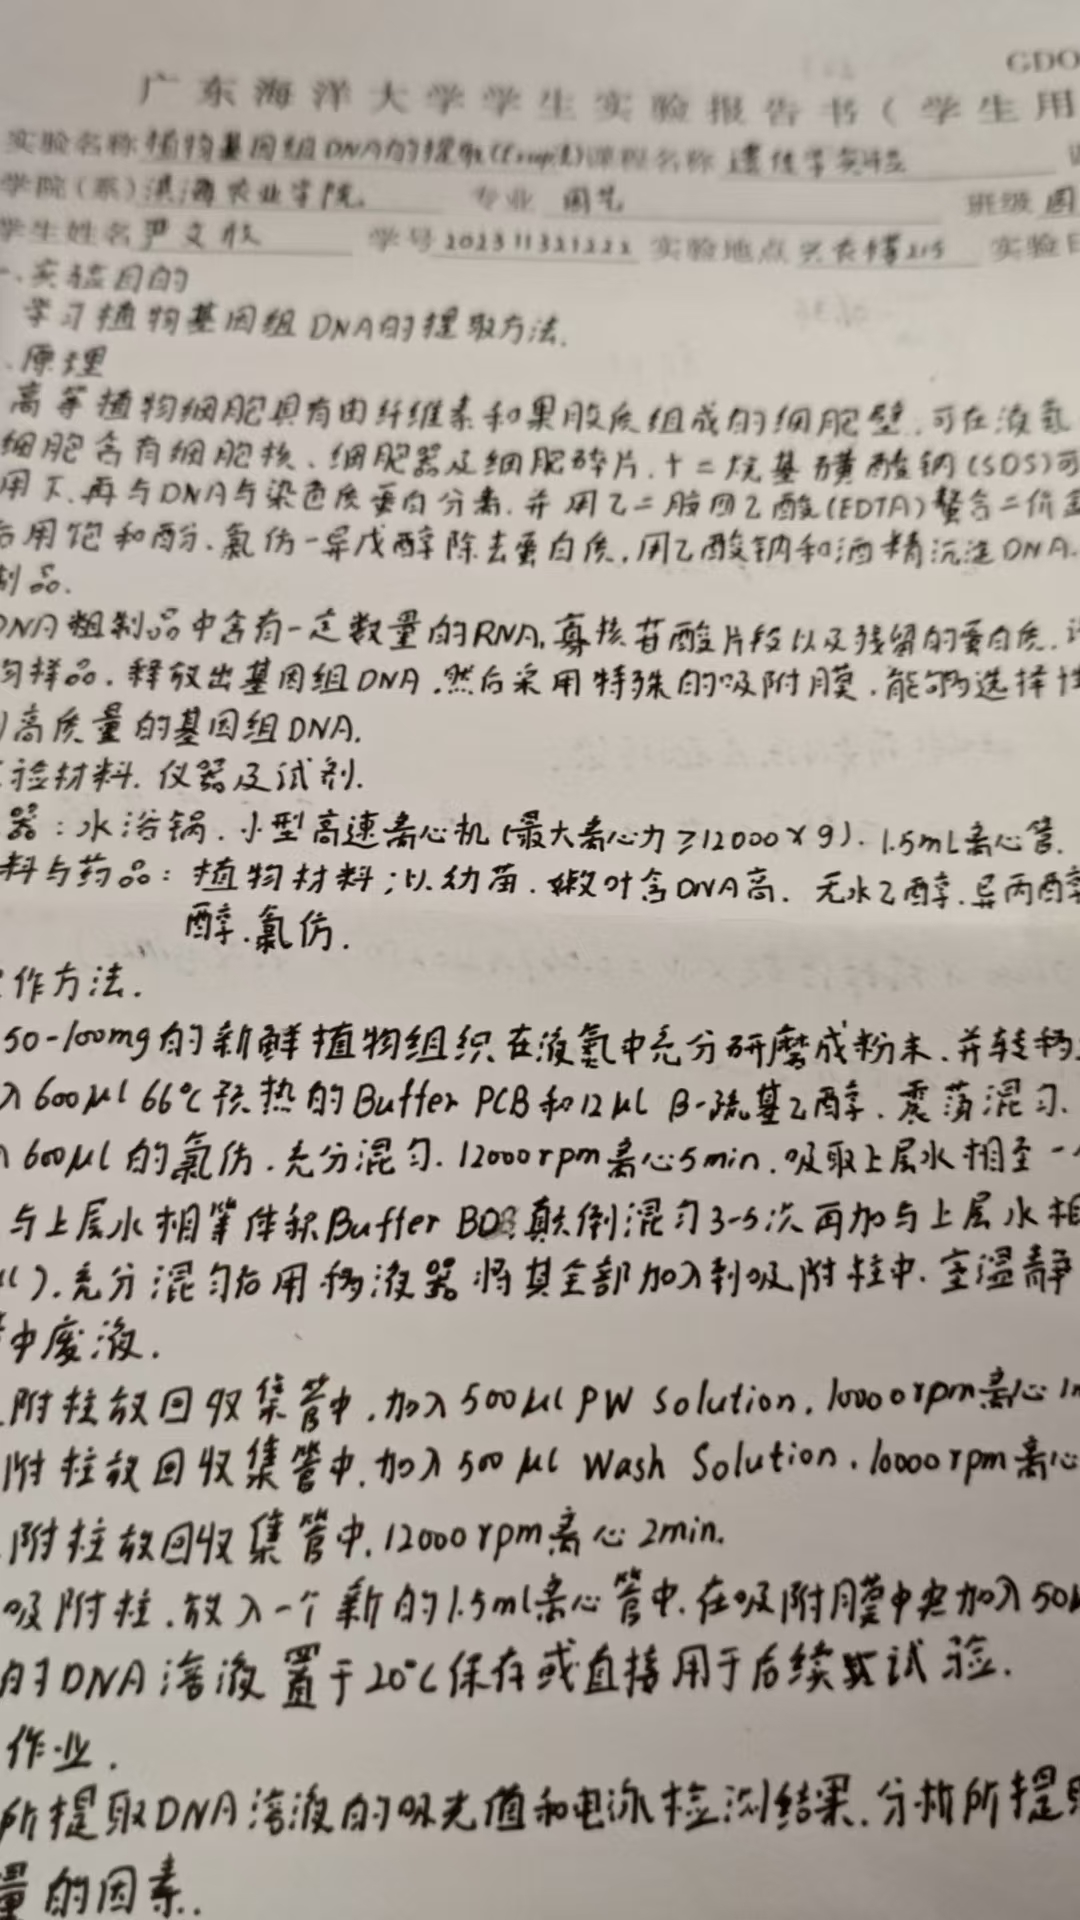 GDO
广东海洋大学学生实验报告书(学生用
实验名称 植物基因组DNA的提取( 法) 课程名称 遗传学实验
学院(系) 滨海农业学院 专业 园艺 班级 园
学生姓名 尹文 学号 202311321222 实验地点 兴农楼215 实验日
一、实验目的
学习植物基因组DNA的提取方法.
、原理
高等植物细胞具有由纤维素和果胶质组成的细胞壁,可在液氮
细胞含有细胞核、细胞器及细胞碎片.十二烷基磺酸钠(SDS)可
用下,再与DNA与染色质蛋白分离.并用乙二胺四乙酸(EDTA)螯合二价金
后用饱和酚、氯仿-异戊醇除去蛋白质,用乙酸钠和酒精沉淀DNA.
制品.
DNA粗制品中含有一定数量的RNA,寡核苷酸片段以及残留的蛋白质.
的样品,释放出基因组DNA,然后采用特殊的吸附膜,能够选择性
高质量的基因组DNA.
验材料.仪器及试剂.
器:水浴锅.小型高速离心机(最大离心力≥12000×g).1.5mL离心管.
料与药品:植物材料;以幼苗.嫩叶含DNA高.无水乙醇.异丙醇
醇.氯仿.
作方法.
50-100mg的新鲜植物组织在液氮中充分研磨成粉末.并转移
入600μl 66℃预热的Buffer PCB和12μl β-巯基乙醇.震荡混匀.
600μl的氯仿.充分混匀.12000rpm离心5min.吸取上层水相至一
与上层水相等体积Buffer BD 颠倒混匀3-5次再加与上层水相
).充分混匀后用移液器将其全部加入到吸附柱中.室温静
中废液.
附柱放回收集管中,加入500μl PW Solution.10000rpm离心1m
附柱放回收集管中.加入500μl Wash Solution.10000rpm离心
附柱放回收集管中.12000rpm离心2min.
吸附柱.放入一个新的1.5ml离心管中.在吸附膜中央加入50
的DNA溶液置于20℃保存或直接用于后续试验.
作业.
所提取DNA溶液的吸光值和电泳检测结果.分析所提取
量的因素.